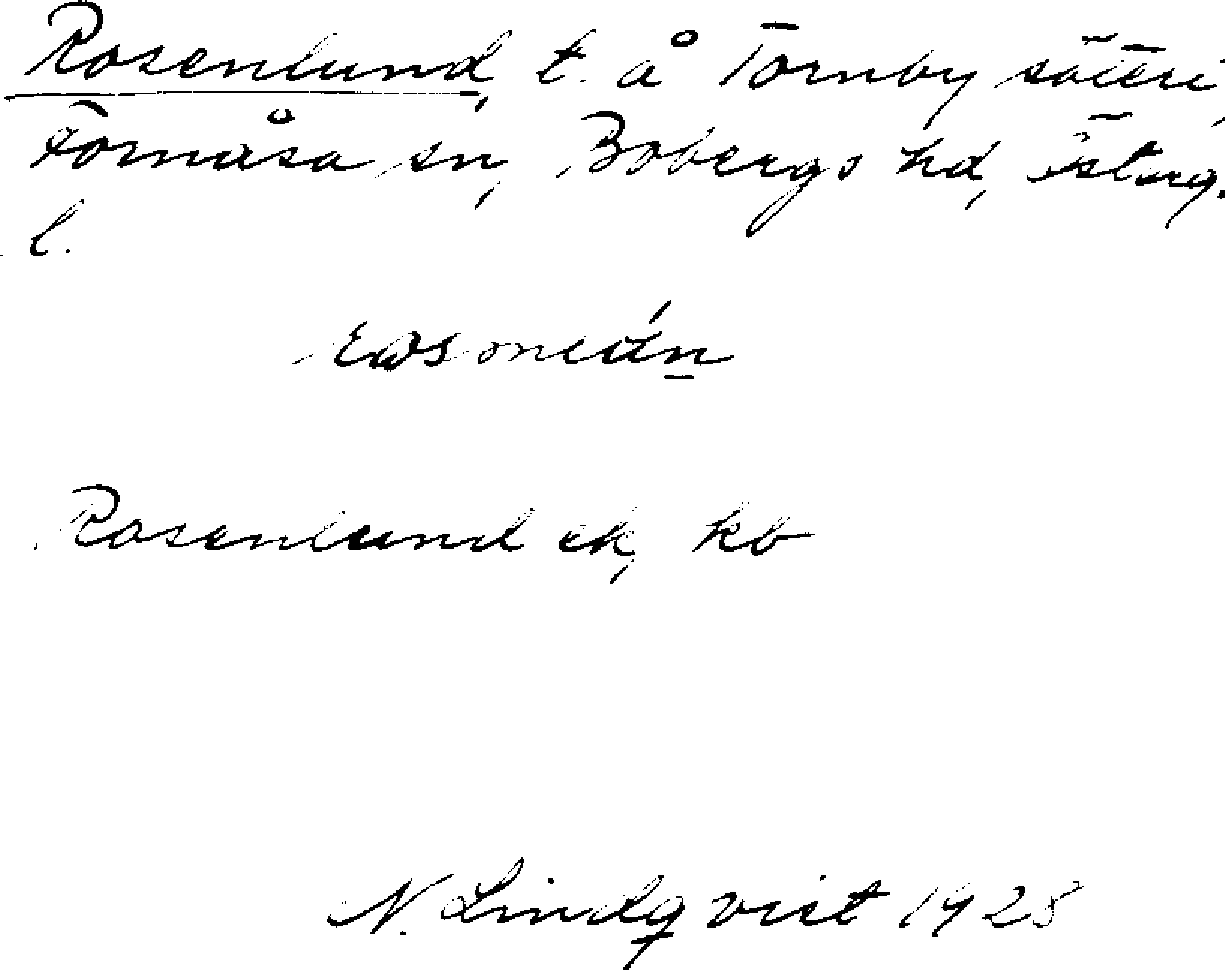 Rosenlund, t. å Tornby säteri,
Fornåsa sn, Bobergs hd, Österg.
l.
Rosenlund ek, kb
N. Lindqvist 1928